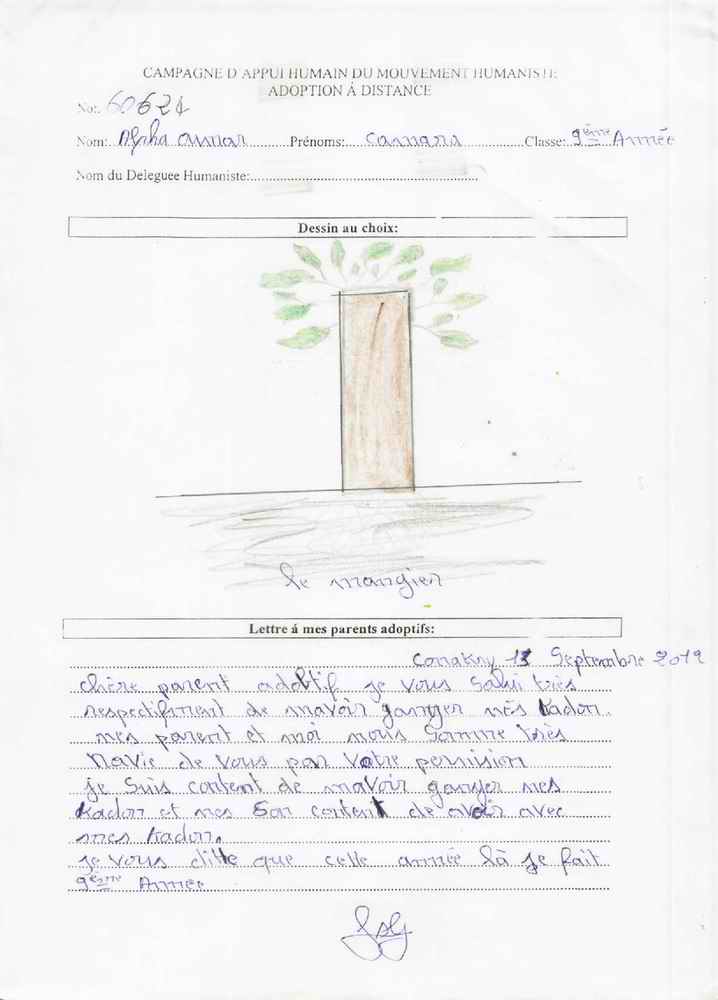 CAMPAGNE D'APPUI HUMAIN DU MOUVEMENT HUMANISTE
ADOPTION À DISTANCE
No: 60621
Nom: Alpha oumar Prénoms: camara Classe: 9ème Année
Nom du Deleguee Humaniste:
Dessin au choix:
le mangier
Lettre á mes parents adoptifs:
Conakry 13 Septembre 2019
chère parent adobtif je vous Salui très
respectifment de mavoir ganger mes kadon.
mes parent et moi nous Somme très
Ravie de vous par votre permision
je Suis content de mavoir ganger mes
kadon et mes Son content de avoir avec
mes kadon.
je vous ditte que cette année là je fait
9ème Année